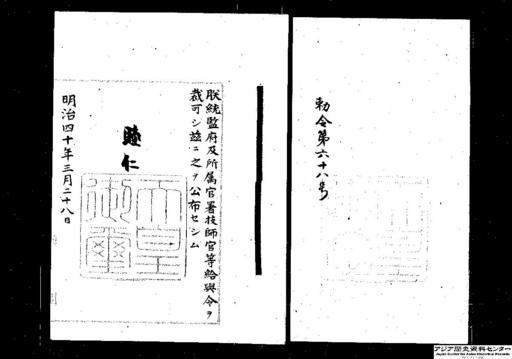 勅令第六十八号
朕統監府及所属官署技師官等給与令ヲ
裁可シ茲ニ之ヲ公布セシム
睦仁
天皇御璽
明治四十年三月二十八日
アジア歴史資料センター
Japan Center for Asian Historical Records